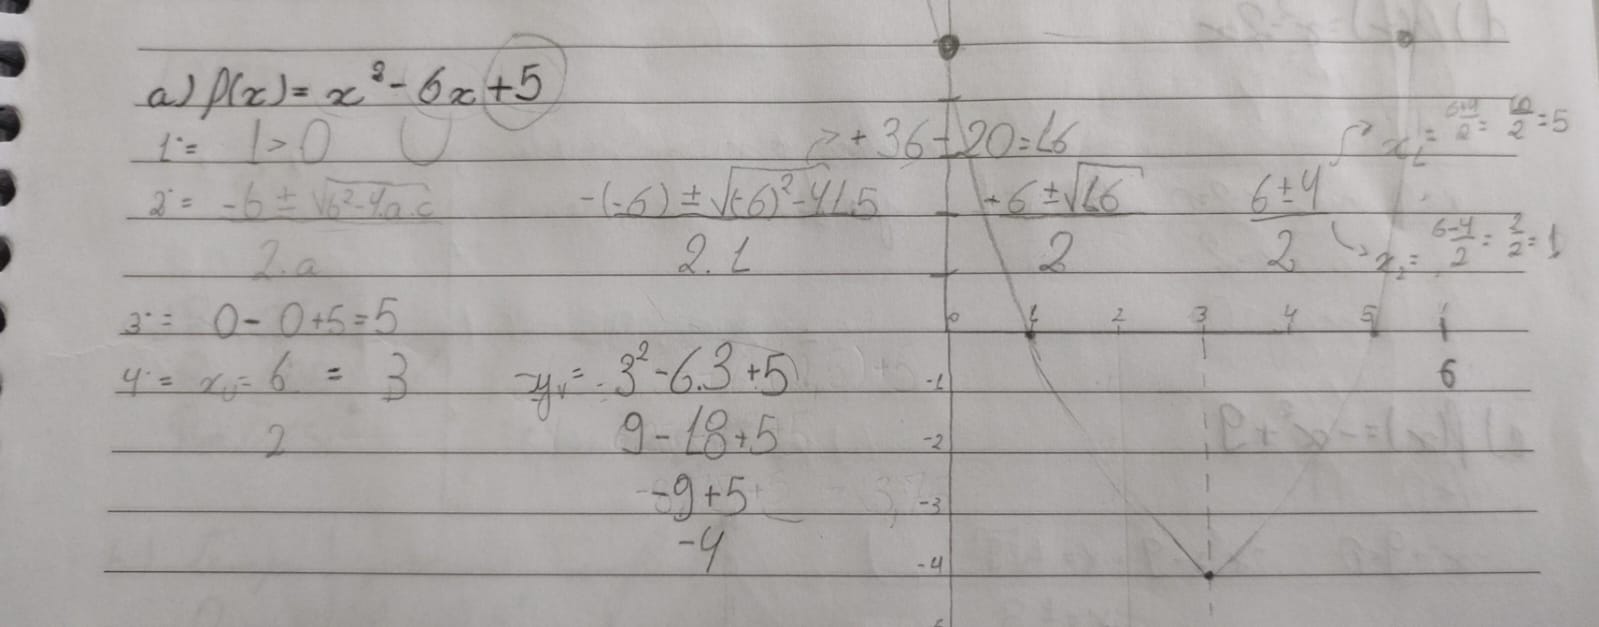 a) f(x) = x² - 6x + 5
1º = 1 > 0 ∪
+ 36 - 20 = 16
2º = -b ± √b² - 4.a.c / 2.a
-(-6) ± √(-6)² - 4.1.5 / 2.1
+6 ± √16 / 2
6 ± 4 / 2
x₁ = 6+4/2 = 10/2 = 5
x₂ = 6-4/2 = 2/2 = 1
3º = 0 - 0 + 5 = 5
4º = xᵥ = 6/2 = 3
yᵥ = 3² - 6.3 + 5
9 - 18 + 5
-9 + 5
-4
0 1 2 3 4 5 6
-1
-2
-3
-4